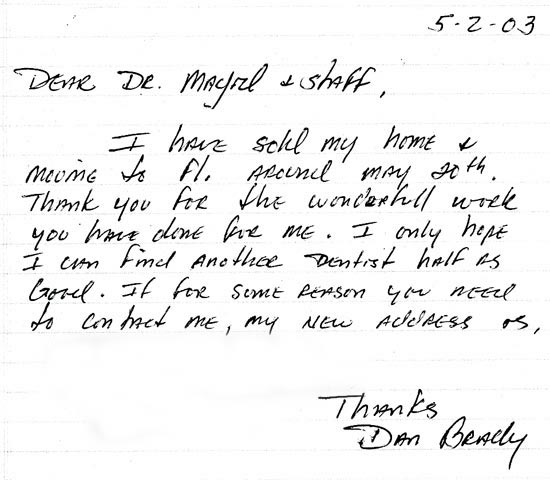 5-2-03
Dear Dr. Mayrl & Staff,
I have sold my home &
moving to Fl. around may 20th.
Thank you for the wonderfull work
you have done for me. I only hope
I can find another Dentist half as
Good. If for some reason you need
to contact me, my new address is,
Thanks
Dan Brady